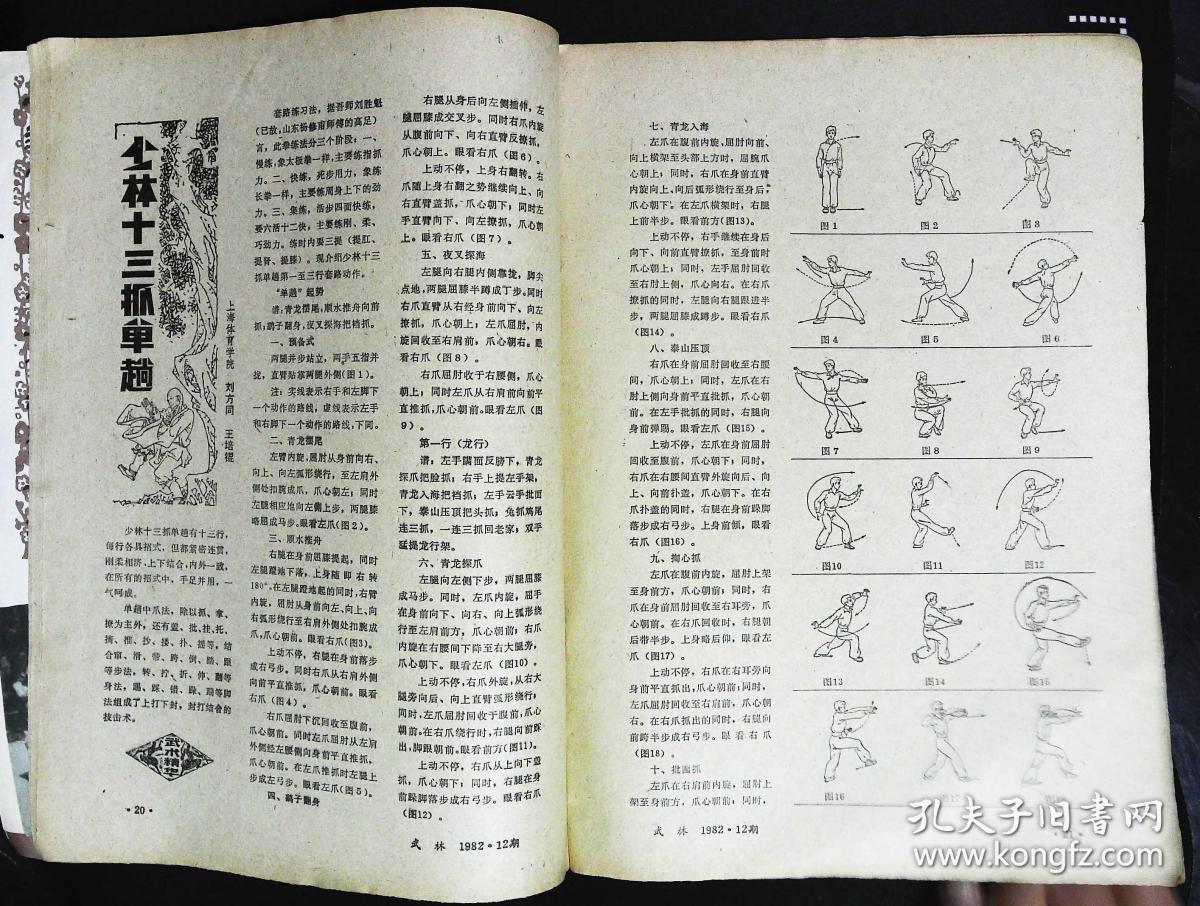 少林十三抓单趟
上海体育学院 刘方同 王培锟
少林十三抓单趟有十三行,
每行各具招式,但都紧密连贯,
刚柔相济,上下结合,内外一致,
在所有的招式中,手足并用,一
气呵成。
单趟中爪法,除以抓、拿、
撩为主外,还有盖、批、挂、托、
摘、推、抄、搂、扑、摇等,结
合窜、滑、带、跨、倒、踏、跟
等步法,转、拧、折、伸、翻等
身法,踢、踩、错、跺、蹋等脚
法组成了上打下封,封打结合的
技击术。
武术精华
·20·
套路练习法,据吾师刘胜魁
(已故,山东杨修甫师傅的高足)
言,此拳练法分三个阶段:一、
慢练,象太极拳一样,主要练指抓
力。二、快练,死步用力,象练
长拳一样,主要练周身上下的劲
力。三、集练,活步四面快练,
要六活十二快,主要练刚、柔、
巧劲力。练时内要三提(提肛、
提肾、提膝)。现介绍少林十三
抓单趟第一至三行套路动作。
“单趟”起势
谱:青龙摆尾,顺水推舟向前
抓;鹞子翻身,夜叉探海把裆抓。
一、预备式
两腿并步站立,两手五指并
拢,直臂贴靠两腿外侧(图1)。
注:实线表示右手和左脚下
一个动作的路线,虚线表示左手
和右脚下一个动作的路线,下同。
二、青龙摆尾
左臂内旋,屈肘从身前向右、
向上、向左弧形绕行,至左肩外
侧处扣腕成爪,爪心朝左;同时
左腿相应地向左侧上步,两腿膝
略屈成马步。眼看左爪(图2)。
三、顺水推舟
右腿在身前屈膝提起,同时
左腿蹬地下落,上身随即右转
180°,在左腿蹬地起的同时,右臂
内旋,屈肘从身前向左、向上、向
右弧形绕行至右肩外侧处扣腕成
爪,爪心朝前。眼看右爪(图3)。
上动不停,右腿在身前落步
成右弓步。同时右爪从右肩外侧
向前平直推抓,爪心朝前。眼看
右爪(图4)。
右爪屈肘下沉回收至腹前,
爪心朝前。同时左爪屈肘从左肩
外侧经左腰侧向身前平直推抓,
爪心朝前。在左爪推抓时左腿上
步成左弓步。眼看左爪(图5)。
四、鹞子翻身
右腿从身后向左侧插伸,左
腿屈膝成交叉步。同时右爪内旋
从腹前向下、向右直臂反撩抓,
爪心朝上。眼看右爪(图6)。
上动不停,上身右翻转。右
爪随上身右翻之势继续向上、向
右直臂盖抓,爪心朝下;同时左
手直臂向下、向左撩抓,爪心朝
上。眼看右爪(图7)。
五、夜叉探海
左腿向右腿内侧靠拢,脚尖
点地,两腿屈膝半蹲成丁步。同时
右爪直臂从右经身前向下、向左
撩抓,爪心朝上,左爪屈肘,内
旋回收至右肩前,爪心朝右。眼
看右爪(图8)。
右爪屈肘收于右腰侧,爪心
朝上;同时左爪从右肩前向前平
直推抓,爪心朝前。眼看左爪(图
9)。
第一行(龙行)
谱:左手瞒面反膀下,青龙
探爪把脸抓;右手上提左手架,
青龙入海把裆抓;左手云手批面
下,泰山压顶把头抓;兔抓鸡尾
连三抓,一连三抓回老家;双手
猛提龙行架。
六、青龙探爪
左腿向左侧下步,两腿屈膝
成马步。同时,左爪内旋,屈手
在身前向下、向右、向上弧形绕
行至左肩前方,爪心朝前;右爪
内旋在右腰间下降至右大腿旁,
爪心朝下。眼看左爪(图10)。
上动不停,右爪外旋,从右大
腿旁向后、向上直臂弧形绕行;
同时,左爪屈肘回收于腹前,爪心
朝前。在右爪绕行时,右腿向前踩
出,脚跟朝前。眼看前方(图11)。
上动不停,右爪从上向下盖
抓,爪心朝下;同时,右腿在身
前跺脚落步成右弓步。眼看右爪
(图12)。
武林 1982·12期
七、青龙入海
左爪在腹前内旋,屈肘向前、
向上横架至头部上方时,屈腕爪
心朝上;同时,右爪在身前直臂
内旋向上、向后弧形绕行至身后,
爪心朝下。在左爪横架时,右腿
上前半步。眼看前方(图13)。
上动不停,右手继续在身后
向下、向前直臂撩抓,至身前时
爪心朝上;同时,左手屈肘回收
至右肘上侧,爪心向右。在右爪
撩抓的同时,左腿向右腿跟进半
步,两腿屈膝成蹲步。眼看右爪
(图14)。
八、泰山压顶
右爪在身前屈肘回收至右腰
间,爪心朝上;同时,左爪在右
肘上侧向身前平直批抓,爪心朝
前。在左手批抓的同时,右腿向
身前弹踢。眼看左爪(图15)。
上动不停,左爪在身前屈肘
回收至腹前,爪心朝下;同时,
右爪在右腰间直臂外旋向后、向
上、向前扑盖,爪心朝下。在右
爪扑盖的同时,右腿在身前跺脚
落步成右弓步。上身前倾,眼看
右爪(图16)。
九、掏心抓
左爪在腹前内旋,屈肘上架
至身前方,爪心朝前;同时,右
爪在身前屈肘回收至右耳旁,爪
心朝前。在右爪回收时,右腿朝
后带半步。上身略后仰,眼看左
爪(图17)。
上动不停,右爪在右耳旁向
身前平直抓出,爪心朝前;同时,
左爪屈肘回收至右肩前,爪心朝
右。在右爪抓出的同时,右腿向
前跨半步成右弓步。眼看右爪
(图18)。
十、批面抓
左爪在右肩前内旋,屈肘上
架至身前方,爪心朝前;同时,
武林 1982·12期
图1 图2 图3
图4 图5 图6
图7 图8 图9
图10 图11 图12
图13 图14 图15
图16 图17
孔夫子旧书网
www.kongfz.com